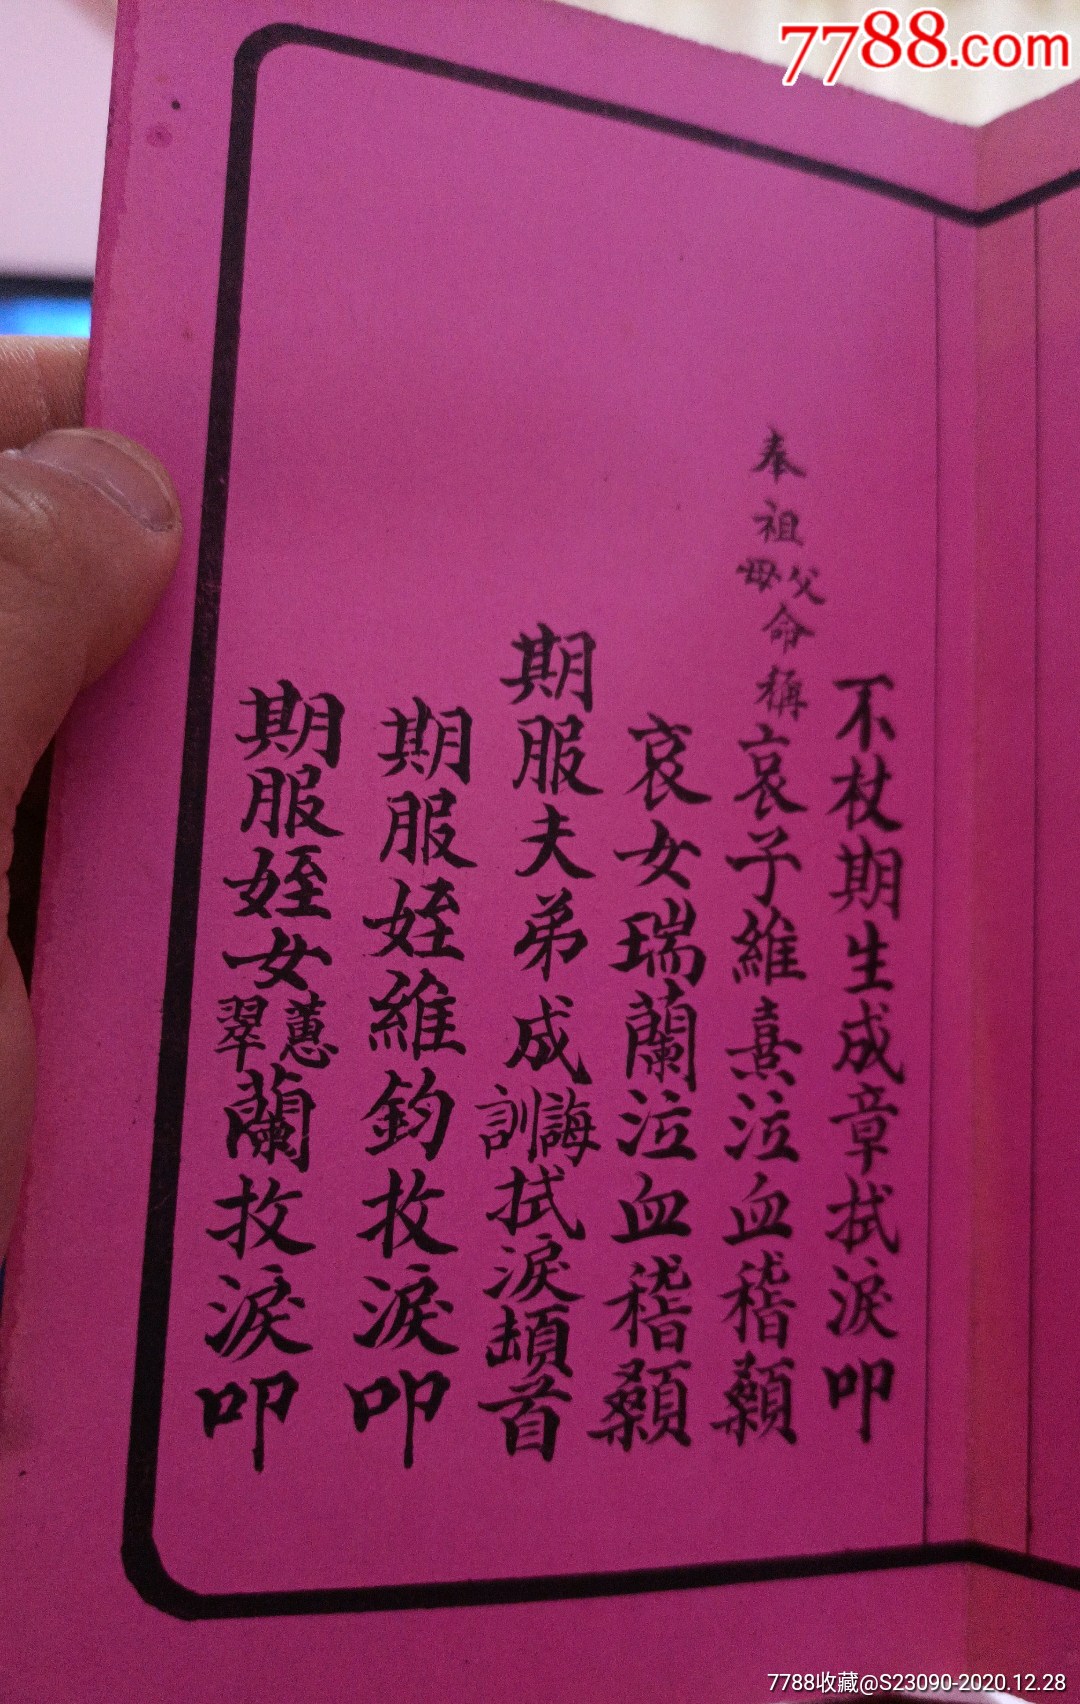 7788.com
不杖期生成章拭淚叩
奉祖父母命稱哀子維熹泣血稽顙
哀女瑞蘭泣血稽顙
期服夫弟成誨訓拭淚頓首
期服姪維鈞抆淚叩
期服姪女蕙翠蘭抆淚叩
7788收藏@S23090-2020.12.28